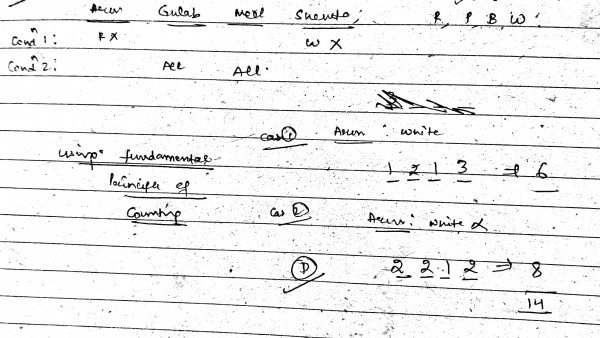 Arun Gulab Neel Shweta; R, P, B, W:
Condⁿ 1: R X W X
Condⁿ 2: All All.
case ① Arun : white
using fundamental 1 2 1 3 ⇒ 6
Principle of
Counting case ② Arun: white X
Ⓓ 2 2 1 2 ⇒ 8
14